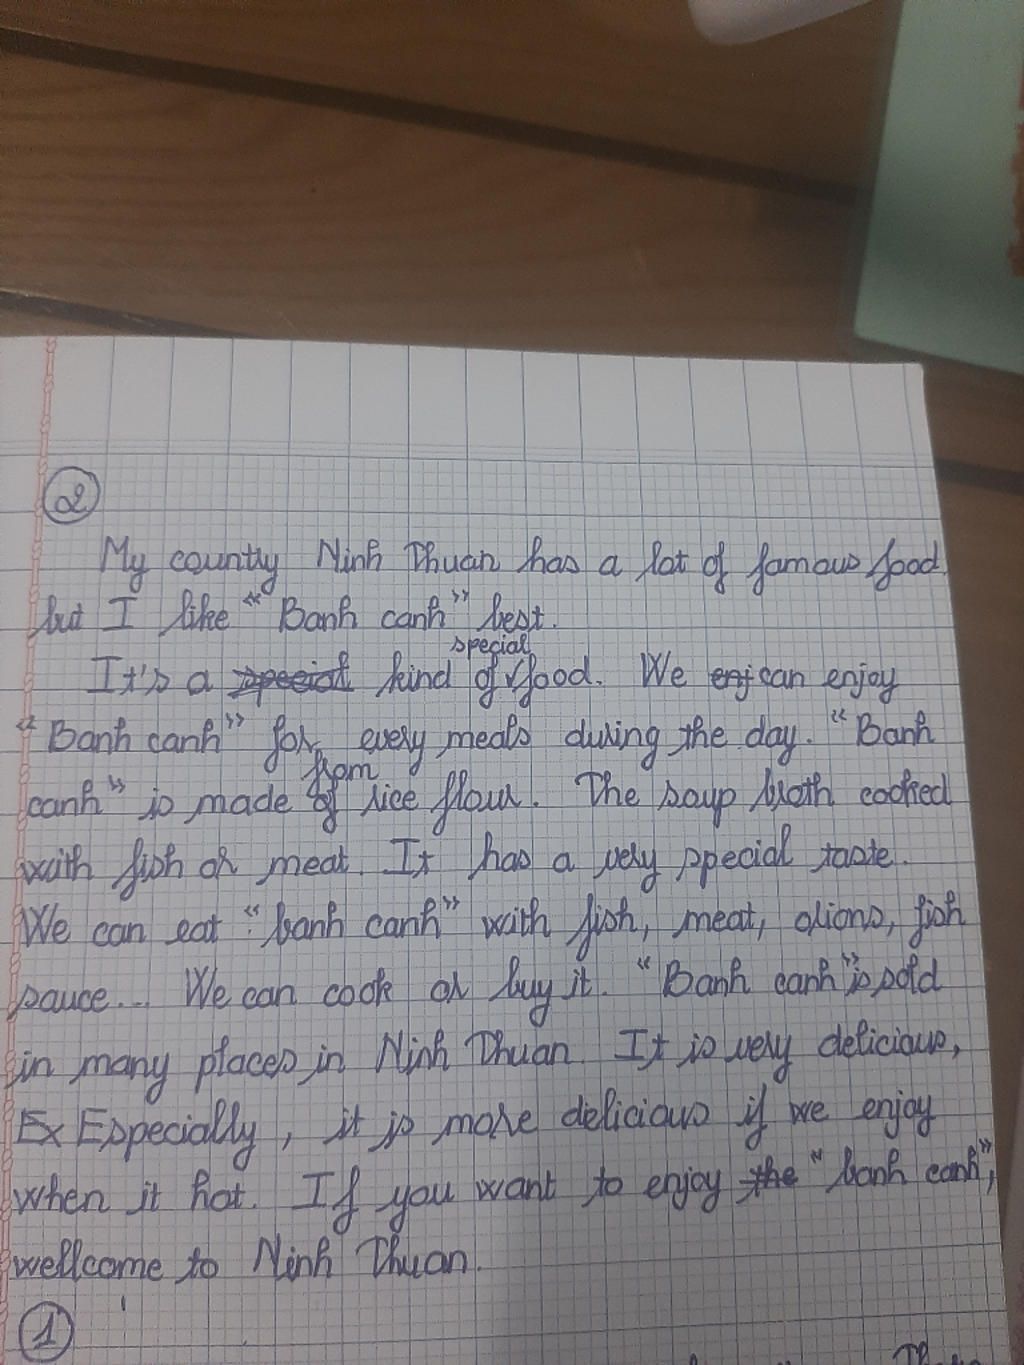 2
My country Ninh Thuan has a lot of famous food
but I like "Banh canh" best.
It's a special kind of special food. We enj can enjoy
"Banh canh" for every meals during the day. "Banh
canh" is made of from rice flour. The soup broth cooked
with fish or meat. It has a very special taste.
We can eat "banh canh" with fish, meat, onions, fish
sauce... We can cook or buy it. "Banh canh" is sold
in many places in Ninh Thuan. It is very delicious,
Ex Especially, it is more delicious if we enjoy
when it hot. If you want to enjoy the "banh canh",
wellcome to Ninh Thuan.
1